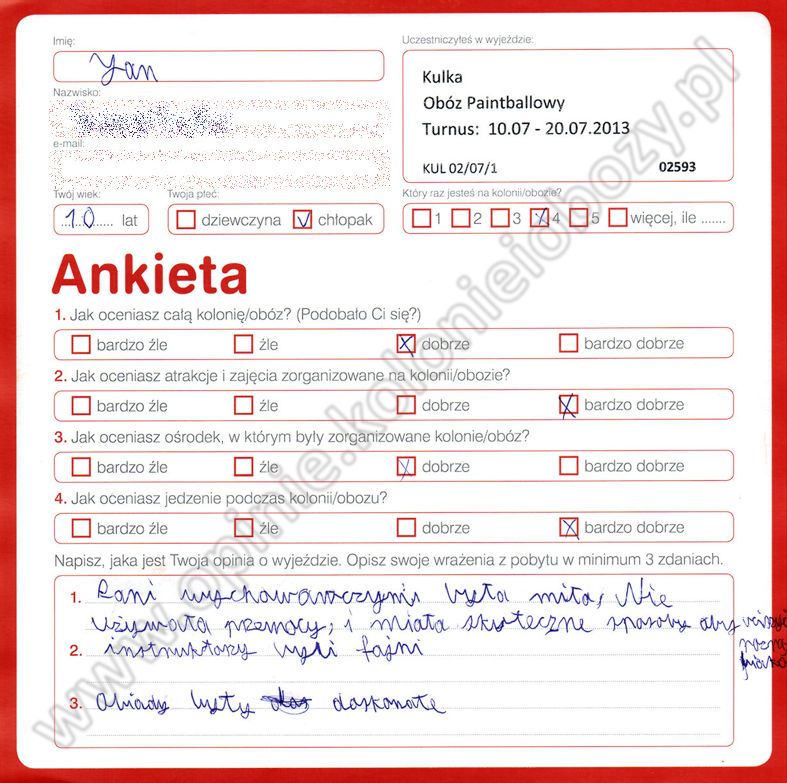 Imię:
Uczestniczyłeś w wyjeździe:
Yan
Kulka
Obóz Paintballowy
Turnus: 10.07 - 20.07.2013
KUL 02/07/1 02593
Nazwisko:
e-mail:
Twój wiek: Twoja płeć: Który raz jesteś na kolonii/obozie?
10 lat dziewczyna chłopak 1 2 3 4 5 więcej, ile .......
Ankieta
1. Jak oceniasz całą kolonię/obóz? (Podobało Ci się?)
bardzo źle źle dobrze bardzo dobrze
2. Jak oceniasz atrakcje i zajęcia zorganizowane na kolonii/obozie?
bardzo źle źle dobrze bardzo dobrze
3. Jak oceniasz ośrodek, w którym były zorganizowane kolonie/obóz?
bardzo źle źle dobrze bardzo dobrze
4. Jak oceniasz jedzenie podczas kolonii/obozu?
bardzo źle źle dobrze bardzo dobrze
Napisz, jaka jest Twoja opinia o wyjeździe. Opisz swoje wrażenia z pobytu w minimum 3 zdaniach.
1. Pani była miła, Nie
używała przemocy, i miała skuteczne sposoby aby
2. instruktorzy byli fajni
3. Obiady były doskonałe
www.opinie.kolonieiobozy.pl